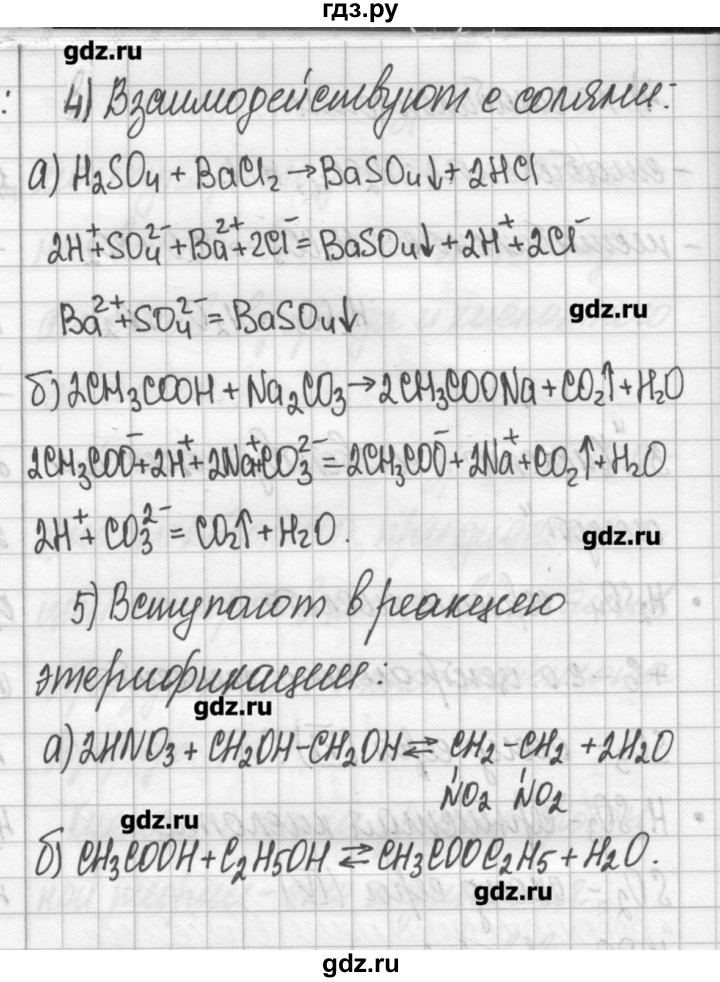 гдз.ру
gdz.ru
4) Взаимодействуют с солями:
а) H₂SO₄ + BaCl₂ → BaSO₄↓ + 2HCl
2H⁺ + SO₄²⁻ + Ba²⁺ + 2Cl⁻ = BaSO₄↓ + 2H⁺ + 2Cl⁻
gdz.ru
Ba²⁺ + SO₄²⁻ = BaSO₄↓
б) 2CH₃COOH + Na₂CO₃ → 2CH₃COONa + CO₂↑ + H₂O
2CH₃COO⁻ + 2H⁺ + 2Na⁺ + CO₃²⁻ = 2CH₃COO⁻ + 2Na⁺ + CO₂↑ + H₂O
2H⁺ + CO₃²⁻ = CO₂↑ + H₂O.
gdz.ru
5) Вступают в реакцию
этерификации:
gdz.ru
а) 2HNO₃ + CH₂OH-CH₂OH ⇄ CH₂-CH₂ + 2H₂O
NO₂ NO₂
gdz.ru
б) CH₃COOH + C₂H₅OH ⇄ CH₃COOC₂H₅ + H₂O.
gdz.ru
gdz.ru